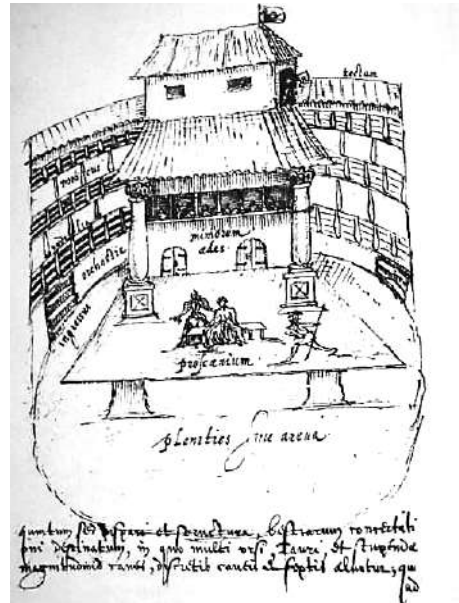 tectum
porticus
orchestra
mimorum
ædes
ingressus
proscænium
planities sive arena
quintum sed dispari et structura, bestiarum concertati
oni destinatum, in quo multi ursi, Tauri, et stupendæ
magnitudinis canes, discretis caueis & septis aluntur, qui
ad